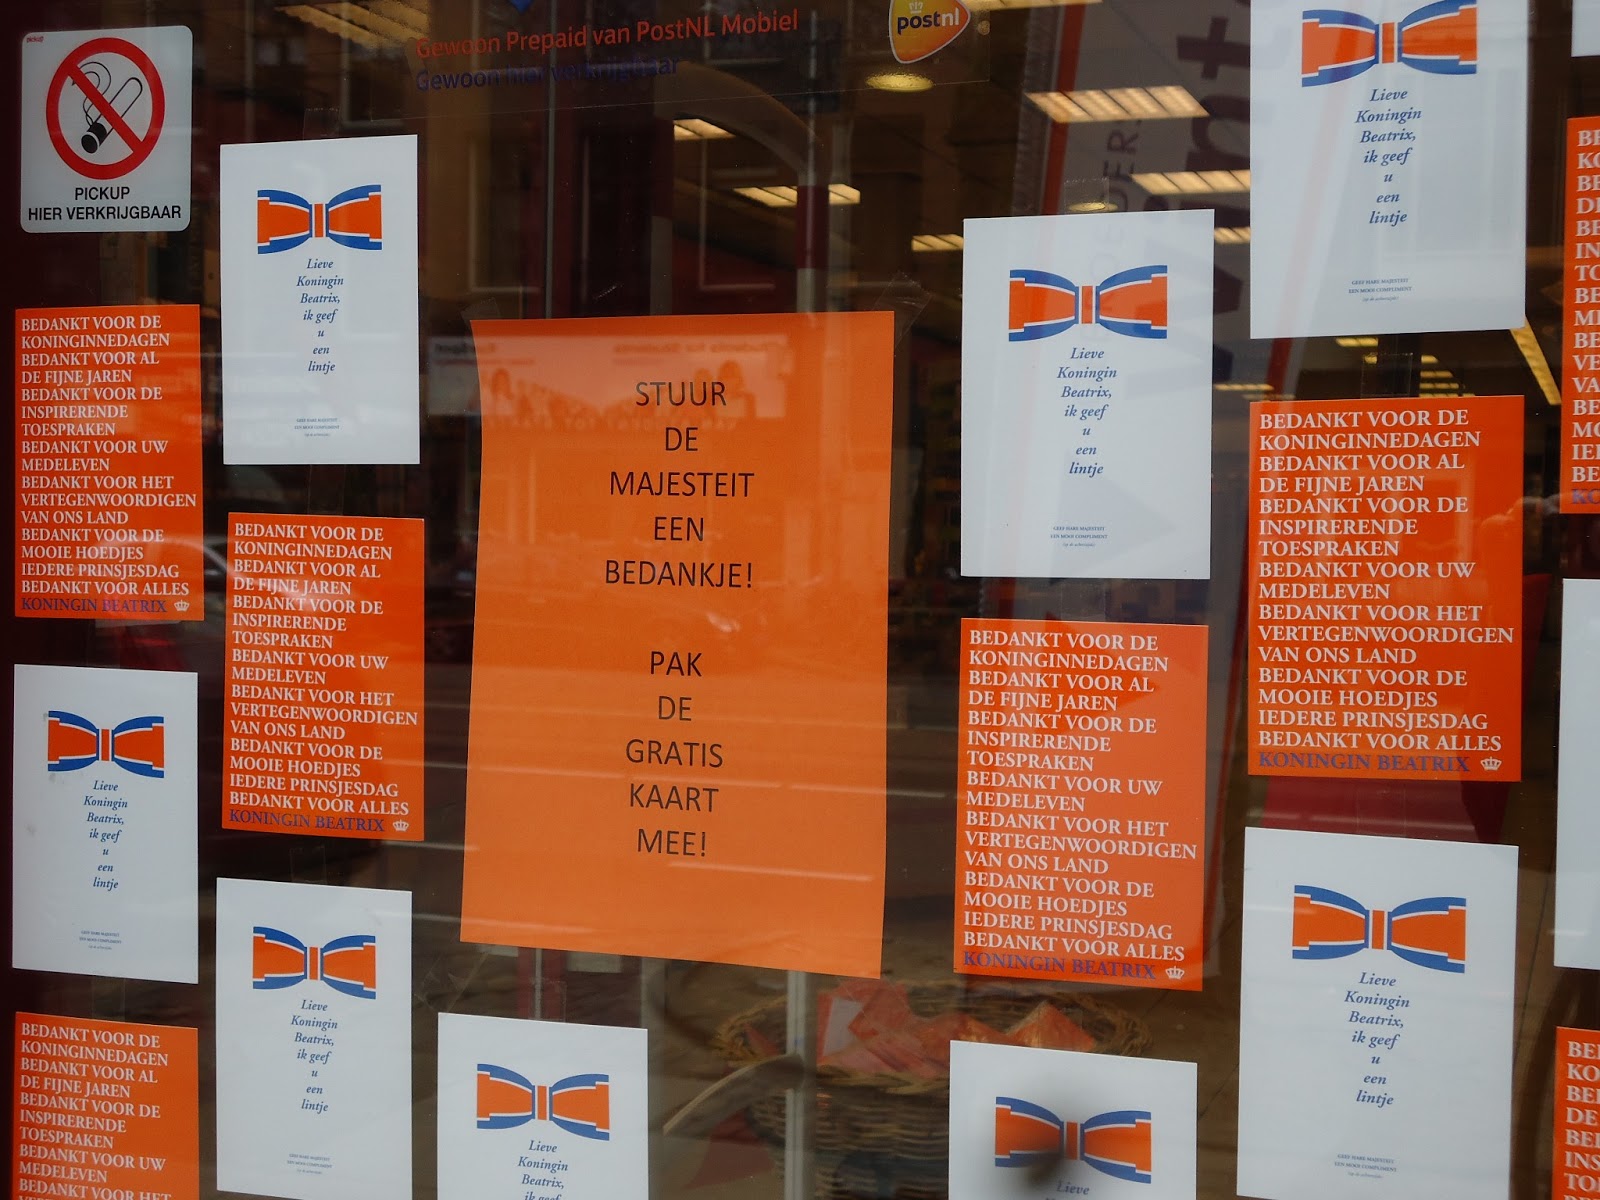 Gewoon Prepaid van PostNL Mobiel
Gewoon hier verkrijgbaar
postnl
PICKUP
HIER VERKRIJGBAAR
BEDANKT VOOR DE
KONINGINNEDAGEN
BEDANKT VOOR AL
DE FIJNE JAREN
BEDANKT VOOR DE
INSPIRERENDE
TOESPRAKEN
BEDANKT VOOR UW
MEDELEVEN
BEDANKT VOOR HET
VERTEGENWOORDIGEN
VAN ONS LAND
BEDANKT VOOR DE
MOOIE HOEDJES
IEDERE PRINSJESDAG
BEDANKT VOOR ALLES
KONINGIN BEATRIX
Lieve
Koningin
Beatrix,
ik geef
u
een
lintje
GEEF HARE MAJESTEIT
EEN MOOI COMPLIMENT
(op de achterzijde)
BEDANKT VOOR DE
KONINGINNEDAGEN
BEDANKT VOOR AL
DE FIJNE JAREN
BEDANKT VOOR DE
INSPIRERENDE
TOESPRAKEN
BEDANKT VOOR UW
MEDELEVEN
BEDANKT VOOR HET
VERTEGENWOORDIGEN
VAN ONS LAND
BEDANKT VOOR DE
MOOIE HOEDJES
IEDERE PRINSJESDAG
BEDANKT VOOR ALLES
KONINGIN BEATRIX
Lieve
Koningin
Beatrix,
ik geef
u
een
lintje
GEEF HARE MAJESTEIT
EEN MOOI COMPLIMENT
(op de achterzijde)
Lieve
Koningin
Beatrix,
ik geef
u
een
lintje
GEEF HARE MAJESTEIT
EEN MOOI COMPLIMENT
(op de achterzijde)
BEDANKT VOOR DE
KONINGINNEDAGEN
BEDANKT VOOR AL
DE FIJNE JAREN
BEDANKT VOOR DE
INSPIRERENDE
TOESPRAKEN
BEDANKT VOOR UW
MEDELEVEN
BEDANKT VOOR HET
STUUR
DE
MAJESTEIT
EEN
BEDANKJE!
PAK
DE
GRATIS
KAART
MEE!
Lieve
Koningin
Beatrix,
ik geef
Lieve
Koningin
Beatrix,
ik geef
u
een
lintje
GEEF HARE MAJESTEIT
EEN MOOI COMPLIMENT
(op de achterzijde)
BEDANKT VOOR DE
KONINGINNEDAGEN
BEDANKT VOOR AL
DE FIJNE JAREN
BEDANKT VOOR DE
INSPIRERENDE
TOESPRAKEN
BEDANKT VOOR UW
MEDELEVEN
BEDANKT VOOR HET
VERTEGENWOORDIGEN
VAN ONS LAND
BEDANKT VOOR DE
MOOIE HOEDJES
IEDERE PRINSJESDAG
BEDANKT VOOR ALLES
KONINGIN BEATRIX
Lieve
Lieve
Koningin
Beatrix,
ik geef
u
een
lintje
GEEF HARE MAJESTEIT
EEN MOOI COMPLIMENT
(op de achterzijde)
BEDANKT VOOR DE
KONINGINNEDAGEN
BEDANKT VOOR AL
DE FIJNE JAREN
BEDANKT VOOR DE
INSPIRERENDE
TOESPRAKEN
BEDANKT VOOR UW
MEDELEVEN
BEDANKT VOOR HET
VERTEGENWOORDIGEN
VAN ONS LAND
BEDANKT VOOR DE
MOOIE HOEDJES
IEDERE PRINSJESDAG
BEDANKT VOOR ALLES
KONINGIN BEATRIX
Lieve
Koningin
Beatrix,
ik geef
u
een
lintje
GEEF HARE MAJESTEIT
EEN MOOI COMPLIMENT
(op de achterzijde)